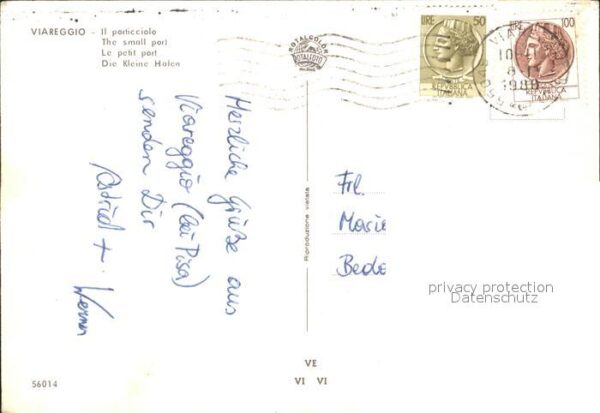 VIAREGGIO - Il porticciolo
The small port
Le petit port
Die Kleine Hafen
ROTALCOLOR
ROTALFOTO
MILANO
LIRE 50
REPVBBLICA
ITALIANA
LIRE 100
REPVBBLICA
ITALIANA
VIA
1980
Herzliche Grüße aus
Viareggio (bei Pisa)
senden Dir
Astrid +
Werner
Riproduzione vietata
Frl.
Marie
Bede
privacy protection
Datenschutz
56014
VE
VI VI